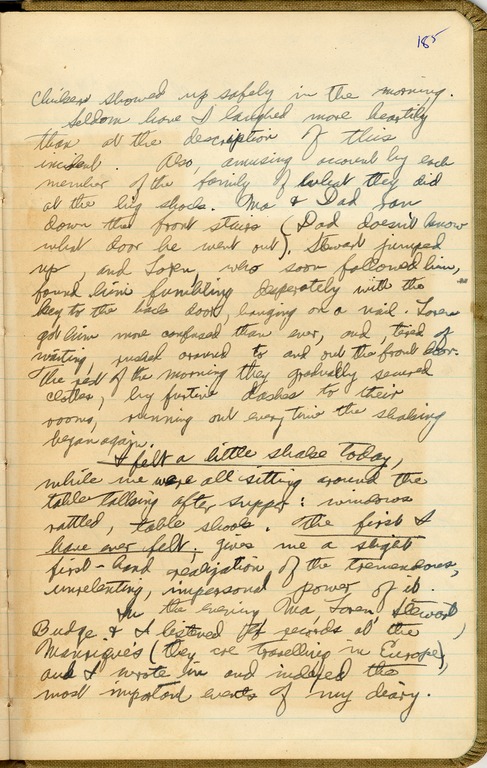 185
chickens showed up safely in the morning.
Seldom have I laughed more heartily
than at the description of this
incident. Also, amusing account by each
member of the family of what they did
at the big shock. Ma & Dad ran
down the front stairs (Dad doesn't know
what door he went out). Stewart jumped
up, and Loren, who soon followed him,
found him fumbling desperately with the
key to the back door, hanging on a nail. Loren
got him more confused than ever, and tired of
waiting, rushed around to and out the front door.
The rest of the morning they gradually secured
clothes, by furtive dashes to their
rooms, running out every time the shaking
began again.
I felt a little shake today,
while we were all sitting around the
table talking after supper: windows
rattled, table shook. The first I
have ever felt, gives me a slight
first-hand realization of the tremendous,
unrelenting, impersonal power of it.
In the evening Ma, Loren, Stewart,
Budge & I listened to records at the
Manriques (they are travelling in Europe),
and I wrote in and indexed the
most important events of my diary.